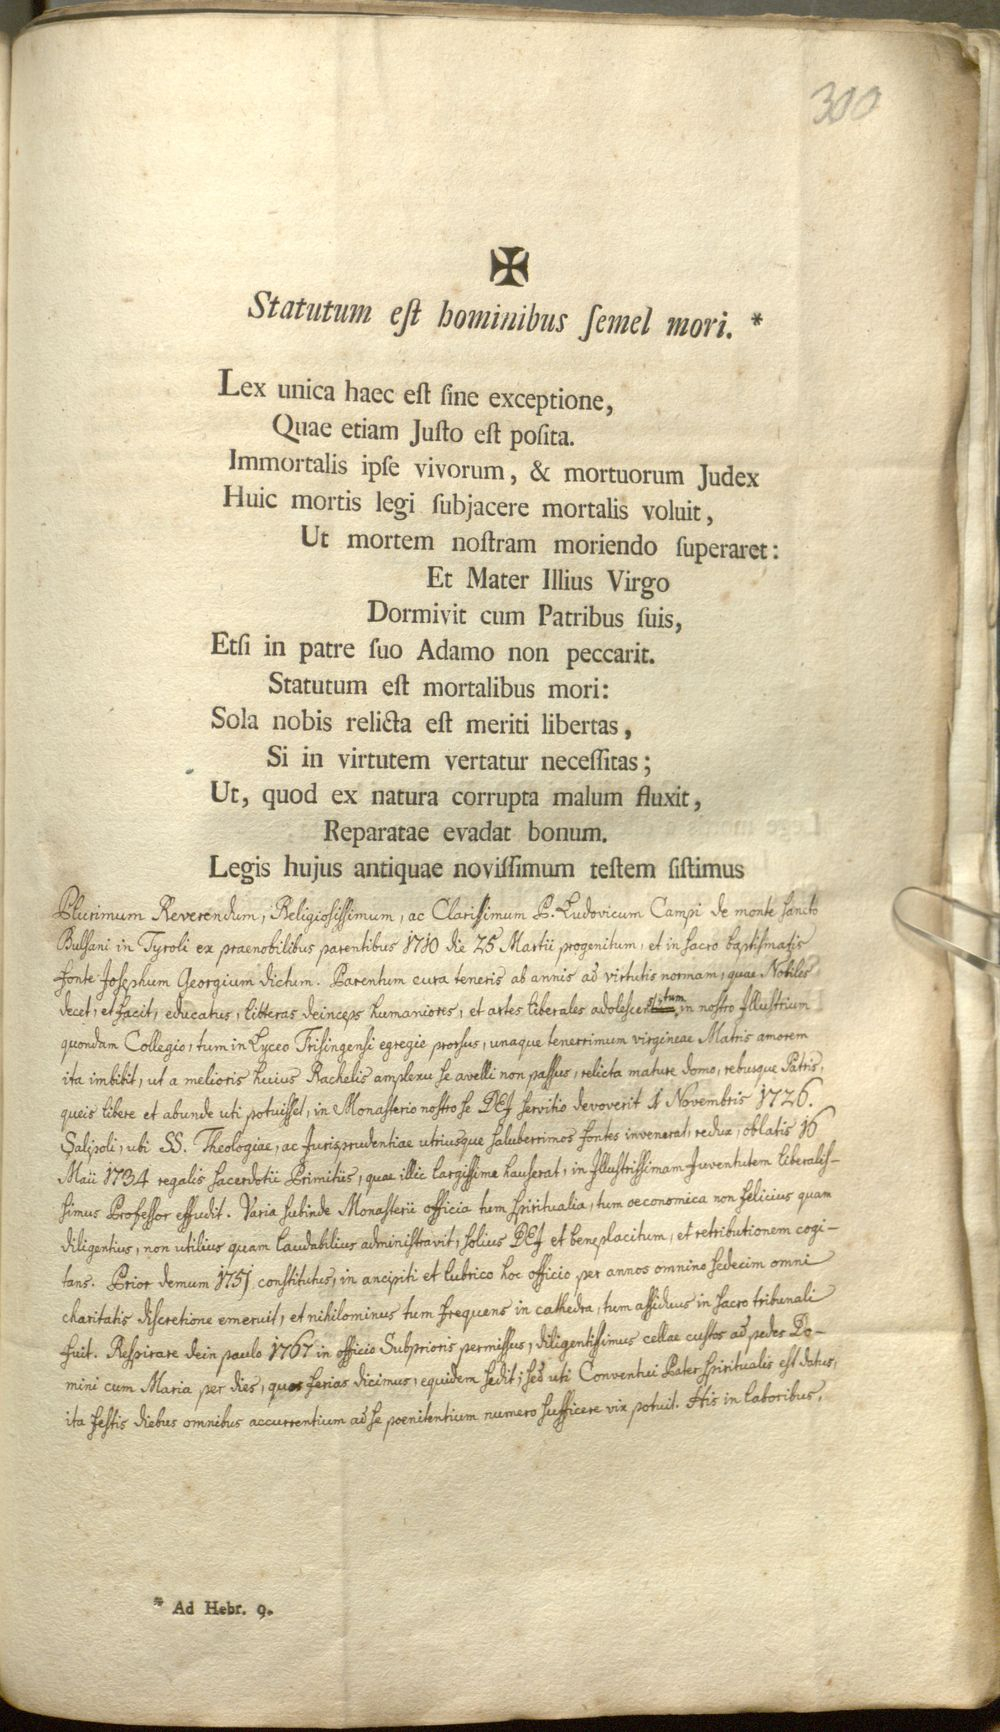 300
✠
Statutum eſt hominibus ſemel mori. *
Lex unica haec eſt ſine exceptione,
Quae etiam Juſto eſt poſita.
Immortalis ipſe vivorum, & mortuorum Judex
Huic mortis legi ſubjacere mortalis voluit,
Ut mortem noſtram moriendo ſuperaret:
Et Mater Illius Virgo
Dormivit cum Patribus ſuis,
Etſi in patre ſuo Adamo non peccarit.
Statutum eſt mortalibus mori:
Sola nobis relicta eſt meriti libertas,
Si in virtutem vertatur neceſſitas;
Ut, quod ex natura corrupta malum fluxit,
Reparatae evadat bonum.
Legis hujus antiquae noviſſimum teſtem ſiſtimus
Plurimum Reverendum, Religiosiſsimum, ac Clariſsimum P. Ludovicum Campi de monte ſancto
Bulſani in Tyroli ex praenobilibus parentibus 1710 die 25 Martii progenitum, et in ſacro baptiſmatis
fonte Joſephum Georgium dictum. Parentum cura teneris ab annis ad virtutis normam, quae Nobiles
decet, et facit, educatus, litteras deinceps humaniores, et artes liberales adoleſcens tum in noſtro Illuſtrium
quondam Collegio, tum in Lyceo Friſingenſi egregie prorſus, unaque tenerrimum virgineae Matris amorem
ita imbibit, ut a melioris huius Rachelis amplexu ſe avelli non paſsus, relicta mature domo, rebusque Patris,
queis libere et abunde uti potuiſſet, in Monaſterio noſtro ſe DEI ſervitio devoverit 11 Novembris 1726.
Saliſpoli, ubi SS. Theologiae, ac Jurisprudentiae utriusque ſaluberrimos fontes invenerat, redux, oblatis 16
Maii 1734 regalis ſacerdotii Primitiis, quae illic largiſſime hauſerat, in Illuſtriſſimam Juventutem liberaliſ-
ſimus Profeſſor effudit. Varia ſubinde Monaſterii officia tum ſpiritualia, tum oeconomica non felicius quam
diligentius, non utilius quam laudabilius adminiſtravit, ſolius DEI et beneplacitum, et retributionem cogi-
tans. Prior demum 1751 conſtitutus, in ancipiti et lubrico hoc officio per annos omnino ſedecim omni
charitatis diſcretione emeruit, et nihilominus tum frequens in cathedra, tum aſſiduus in ſacro tribunali
fuit. Reſpirare dein paulo 1767 in officio Subprioris permiſſus, diligentiſſimus cellae cuſtos ad pedes Do-
mini cum Maria per dies, quos ferias dicimus, equidem ſedit; ſed uti Conventui Pater ſpiritualis eſt datus,
ita feſtis diebus omnibus accurrentium ad ſe poenitentium numero ſufficere vix potuit. His in laboribus,
* Ad Hebr. 9.